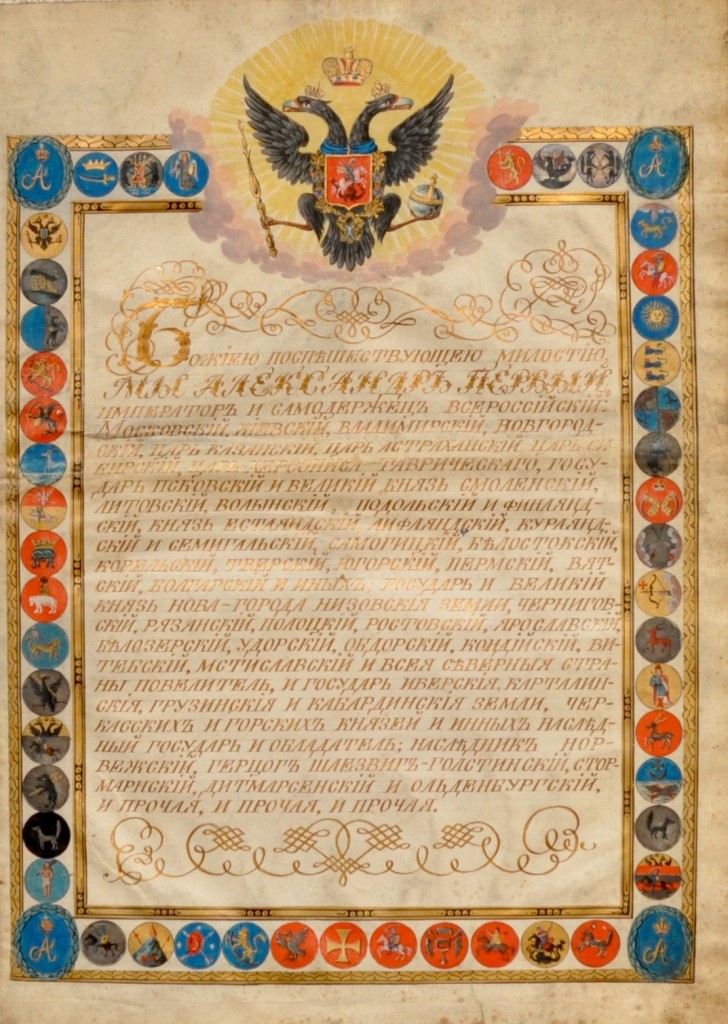 Божіею поспѣшествующею милостію,
МЫ АЛЕКСАНДРЪ ПЕРВЫЙ,
ИМПЕРАТОРЪ И САМОДЕРЖЕЦЪ ВСЕРОССІЙСКІЙ:
МОСКОВСКІЙ, КІЕВСКІЙ, ВЛАДИМИРСКІЙ, НОВГОРОД-
СКІЙ, ЦАРЬ КАЗАНСКІЙ, ЦАРЬ АСТРАХАНСКІЙ, ЦАРЬ СИ-
БИРСКІЙ, ЦАРЬ ХЕРСОНИСА-ТАВРИЧЕСКАГО, ГОСУ-
ДАРЬ ПСКОВСКІЙ И ВЕЛИКІЙ КНЯЗЬ СМОЛЕНСКІЙ,
ЛИТОВСКІЙ, ВОЛЫНСКІЙ, ПОДОЛЬСКІЙ И ФИНЛЯНД-
СКІЙ, КНЯЗЬ ЕСТЛЯНДСКІЙ, ЛИФЛЯНДСКІЙ, КУРЛЯНД-
СКІЙ И СЕМИГАЛЬСКІЙ, САМОГИЦКІЙ, БѢЛОСТОКСКІЙ,
КОРЕЛЬСКІЙ, ТВЕРСКІЙ, ЮГОРСКІЙ, ПЕРМСКІЙ, ВЯТ-
СКІЙ, БОЛГАРСКІЙ И ИНЫХЪ; ГОСУДАРЬ И ВЕЛИКІЙ
КНЯЗЬ НОВА-ГОРОДА НИЗОВСКІЯ ЗЕМЛИ, ЧЕРНИГОВ-
СКІЙ, РЯЗАНСКІЙ, ПОЛОЦКІЙ, РОСТОВСКІЙ, ЯРОСЛАВСКІЙ
БѢЛОЗЕРСКІЙ, УДОРСКІЙ, ОБДОРСКІЙ, КОНДІЙСКІЙ, ВИ-
ТЕБСКІЙ, МСТИСЛАВСКІЙ И ВСЕЯ СѢВЕРНЫЯ СТРА-
НЫ ПОВЕЛИТЕЛЬ, И ГОСУДАРЬ ИВЕРСКІЯ, КАРТАЛИН-
СКІЯ, ГРУЗИНСКІЯ И КАБАРДИНСКІЯ ЗЕМЛИ, ЧЕР-
КАССКИХЪ И ГОРСКИХЪ КНЯЗЕЙ И ИННЫХЪ НАСЛѢД-
НЫЙ ГОСУДАРЬ И ОБЛАДАТЕЛЬ; НАСЛѢДНИКЪ НОР-
ВЕЖСКІЙ, ГЕРЦОГЪ ШЛЕЗВИГЪ-ГОЛСТИНСКІЙ, СТОР-
МАРНСКІЙ, ДИТМАРСЕНСКІЙ И ОЛЬДЕНБУРГСКІЙ,
И ПРОЧАЯ, И ПРОЧАЯ, И ПРОЧАЯ.